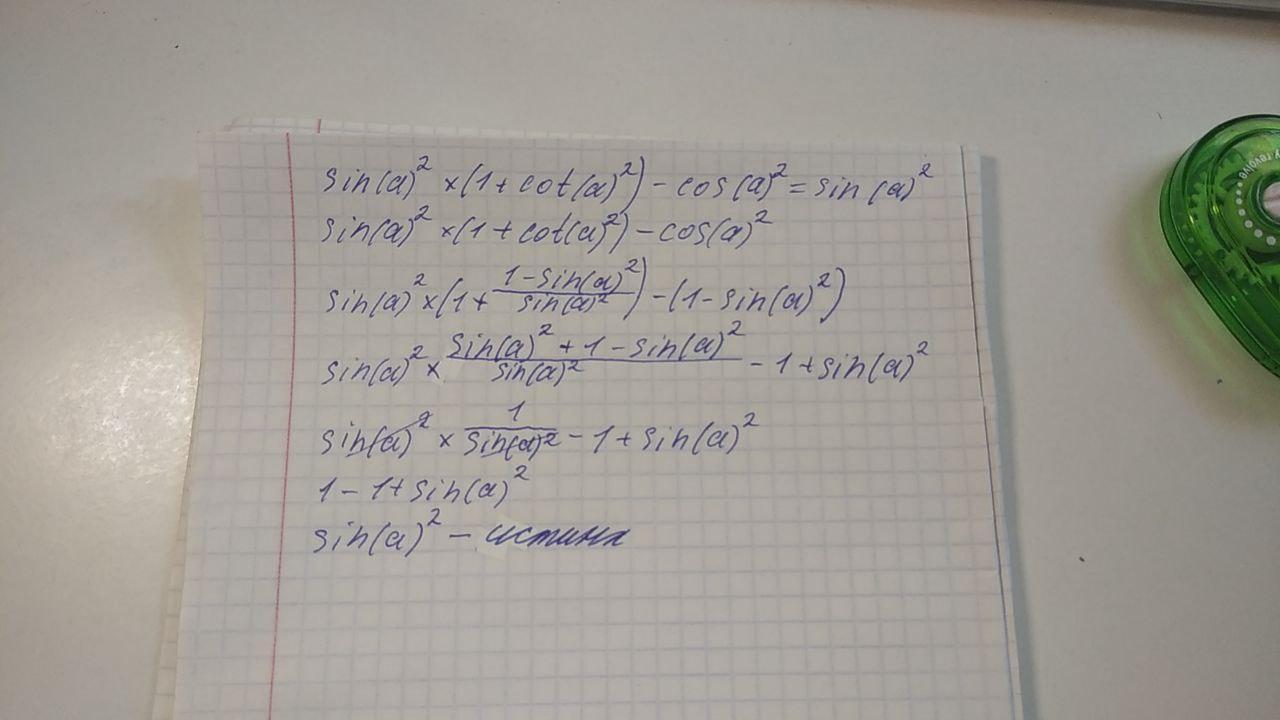 sin(a)² × (1 + cot(a)²) - cos(a)² = sin(a)²
sin(a)² × (1 + cot(a)²) - cos(a)²
sin(a)² × (1 + (1 - sin(a)²)/(sin(a)²)) - (1 - sin(a)²)
sin(a)² × (sin(a)² + 1 - sin(a)²)/(sin(a)²) - 1 + sin(a)²
sin(a)² × 1/(sin(a)²) - 1 + sin(a)²
1 - 1 + sin(a)²
sin(a)² - истина